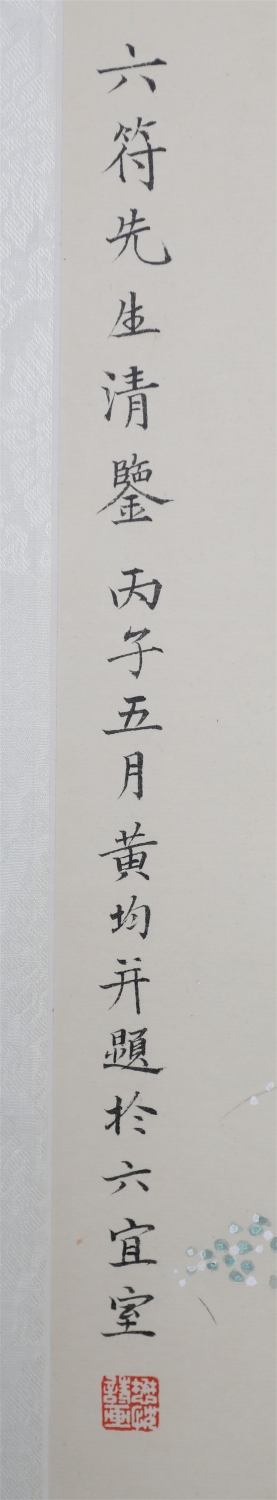 六符先生清鑒 丙子五月黄均并題於六宜室